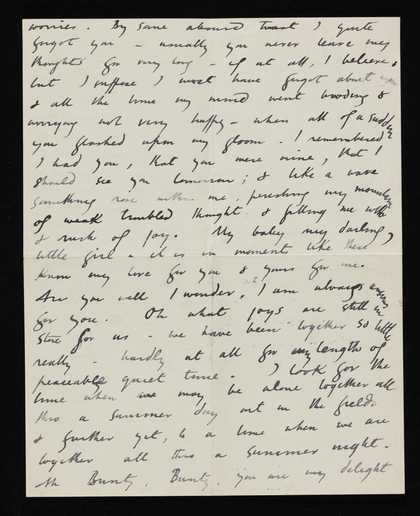 worries. By some absurd twist I quite
forgot you — usually you never leave my
thoughts for very long — if at all, I believe,
but I suppose I must have forgot about you
& all the time my mind went brooding &
worrying not very happy — when all of a sudden
you flashed upon my gloom. I remembered
I had you, that you were mine, that I
should see you tomorrow; & like a wave
something rose within me, my
of weak troubled thought & filling me with
a rush of joy. My baby my darling,
little girl — it is in moments like these I
know my love for you & yours for me.
Are you well I wonder, I am always
for you. Oh what joys are still in
store for us — we have been together so little
really — hardly at all for any length of
peaceable quiet time. I look for the
time when we may be alone together all
thro a summer day out in the fields
& further yet, to a time when we are
together all thro a summer night.
Ah Bunty, Bunty, you are my delight